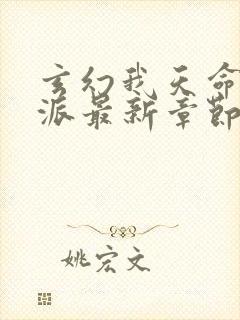 玄幻我天命
派最新章節
姚宏文